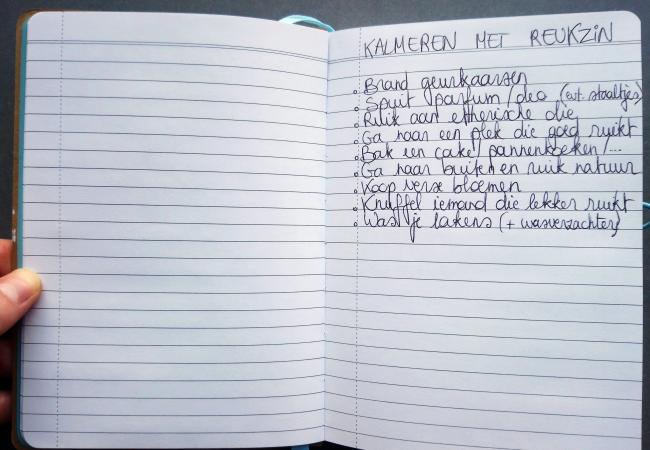 KALMEREN MET REUKZIN
Brand geurkaarsen
Spuit parfum/deo (evt. staaltjes)
Ruik aan etherische olie
Ga naar een plek die goed ruikt
Bak een cake/pannenkoeken/...
Ga naar buiten en ruik natuur
Koop verse bloemen
Knuffel iemand die lekker ruikt
Was je lakens (+ wasverzachter)